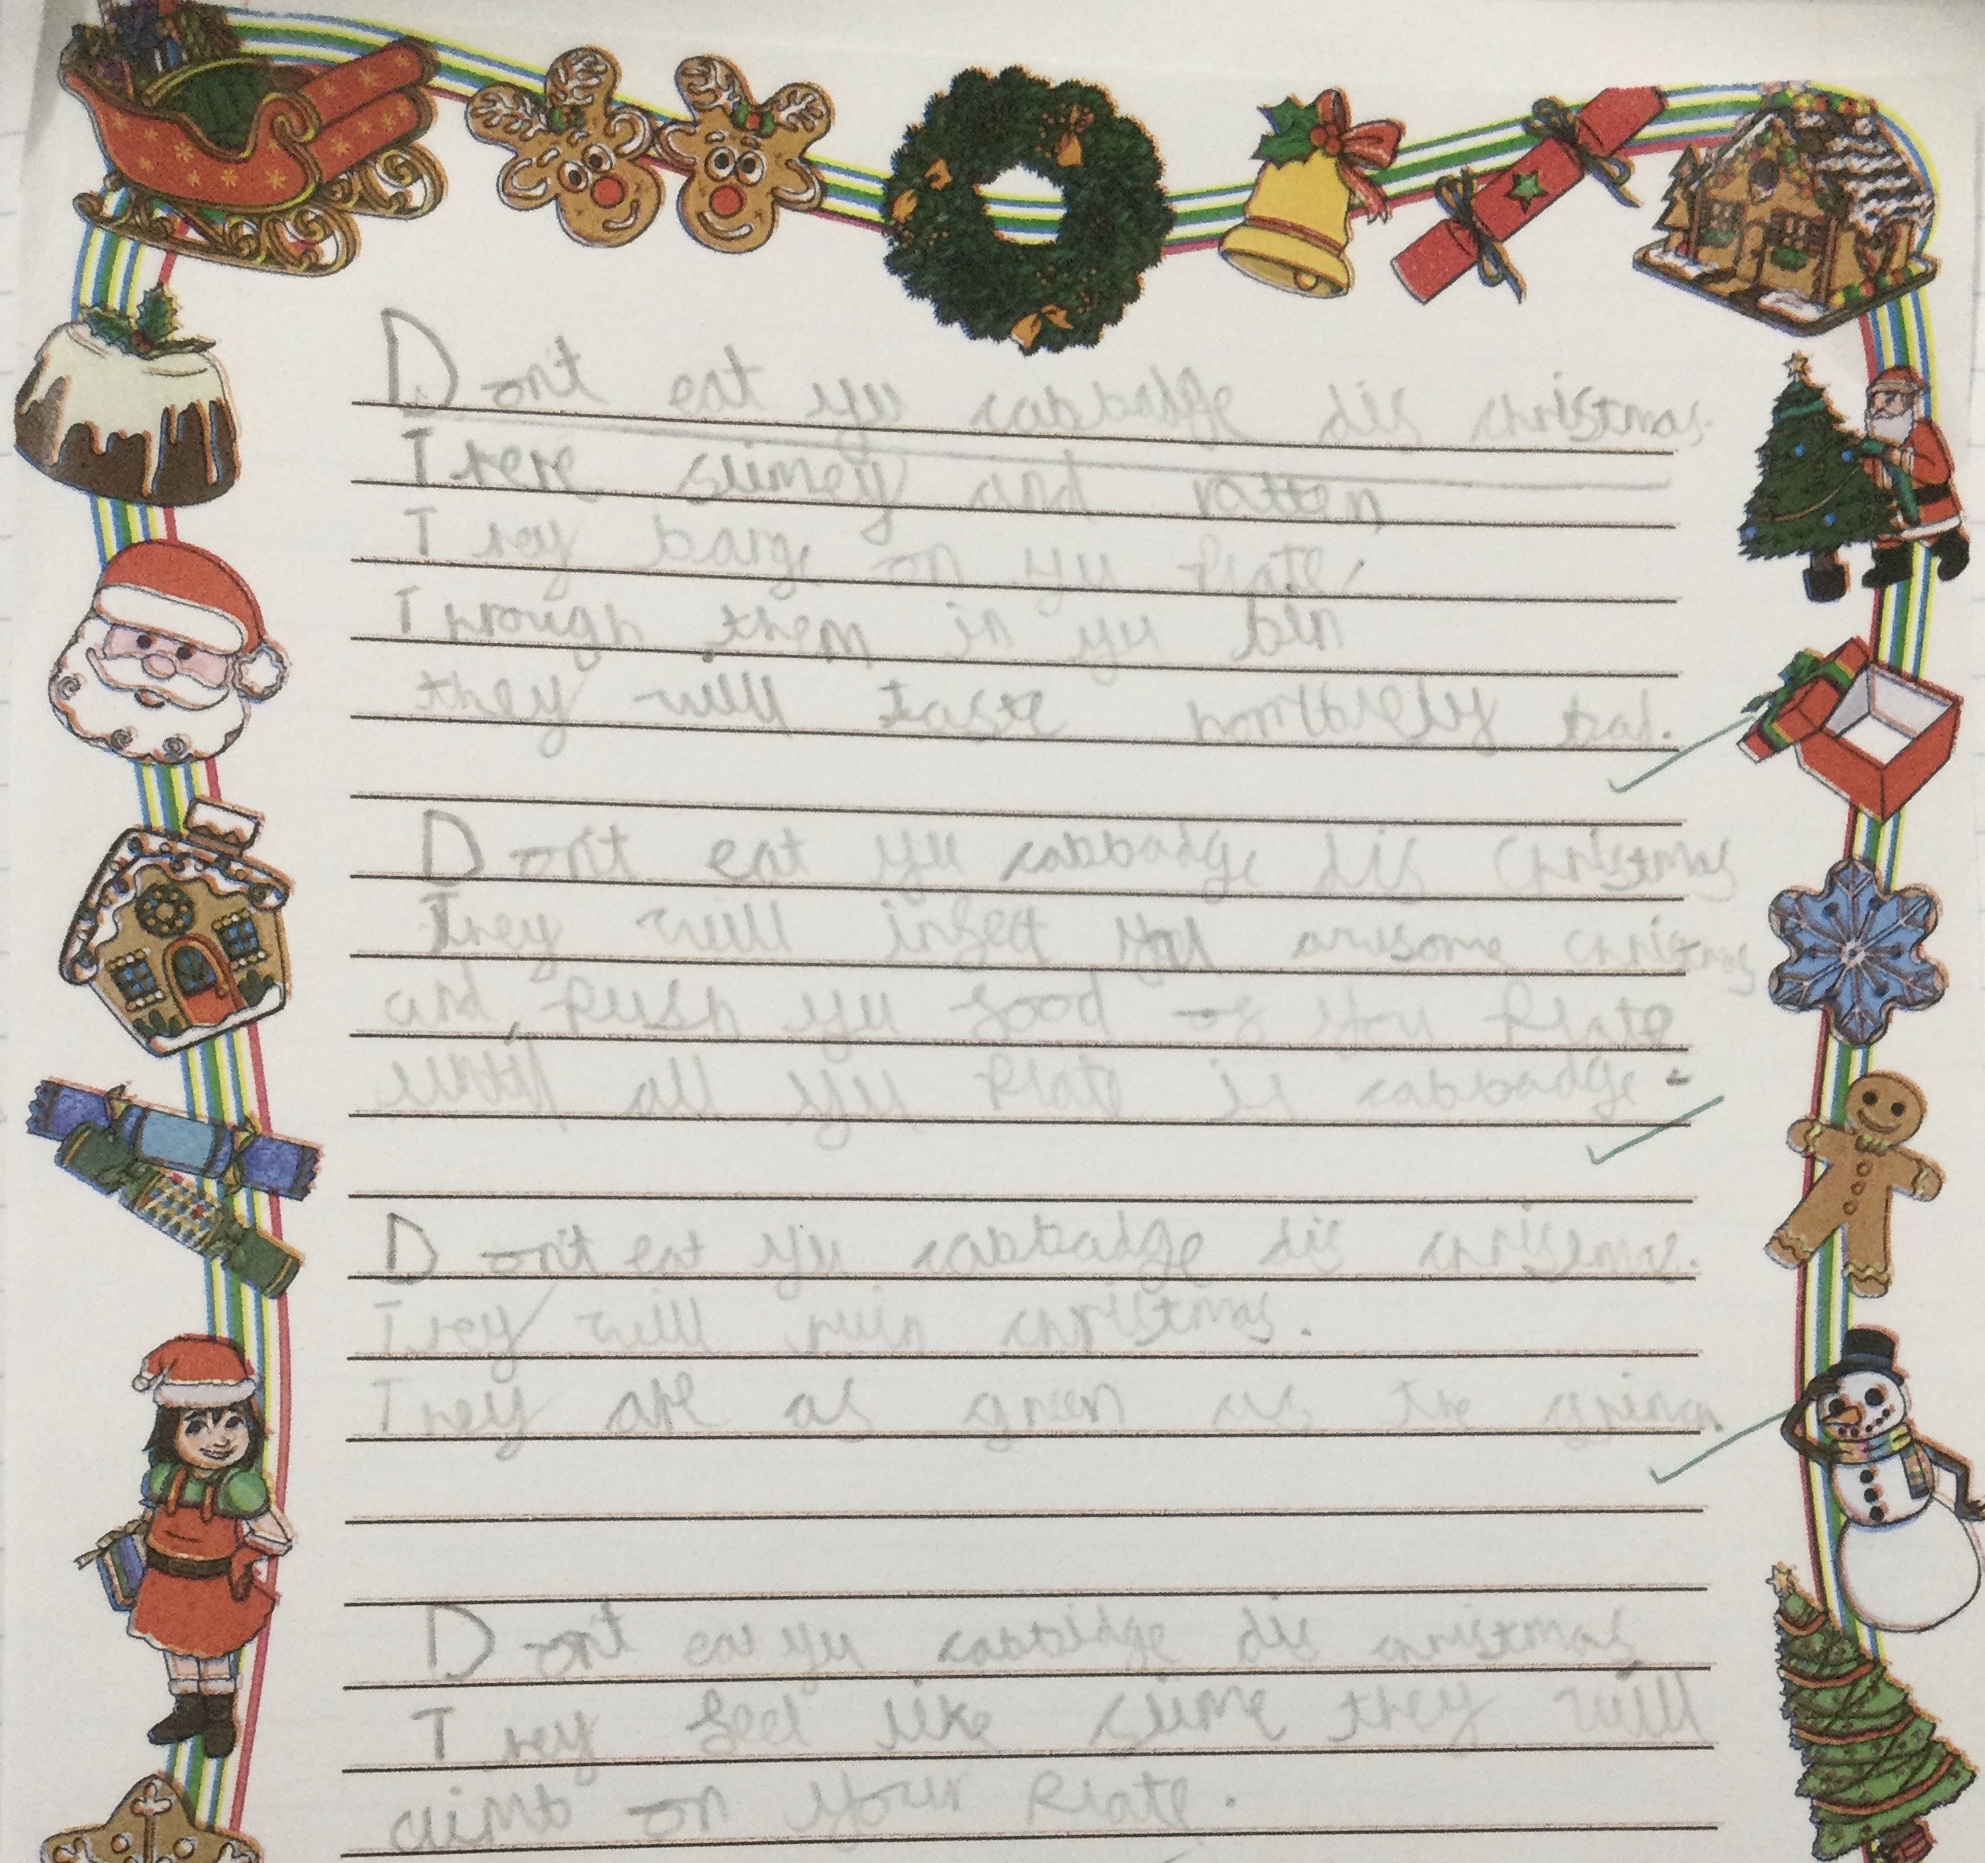 Don't eat yyu cabbadge dis cristmas.
There slimey and rotten
They bang on yyu plate.
Througd them in yyu bin
they will taste horriblely bad.
Don't eat yyu cabbadge dis Cristmas
They will infett your awesome cristmas
and push yyu food of your plate
untill all yyu plate is cabbadge.
Don't eat yyu cabbadge dis crismas.
They will ruin cristmas.
They are as green as the grinch
Don't eat yyu cabbidge dis cristmas
They feel like slime they will
climb on your plate.